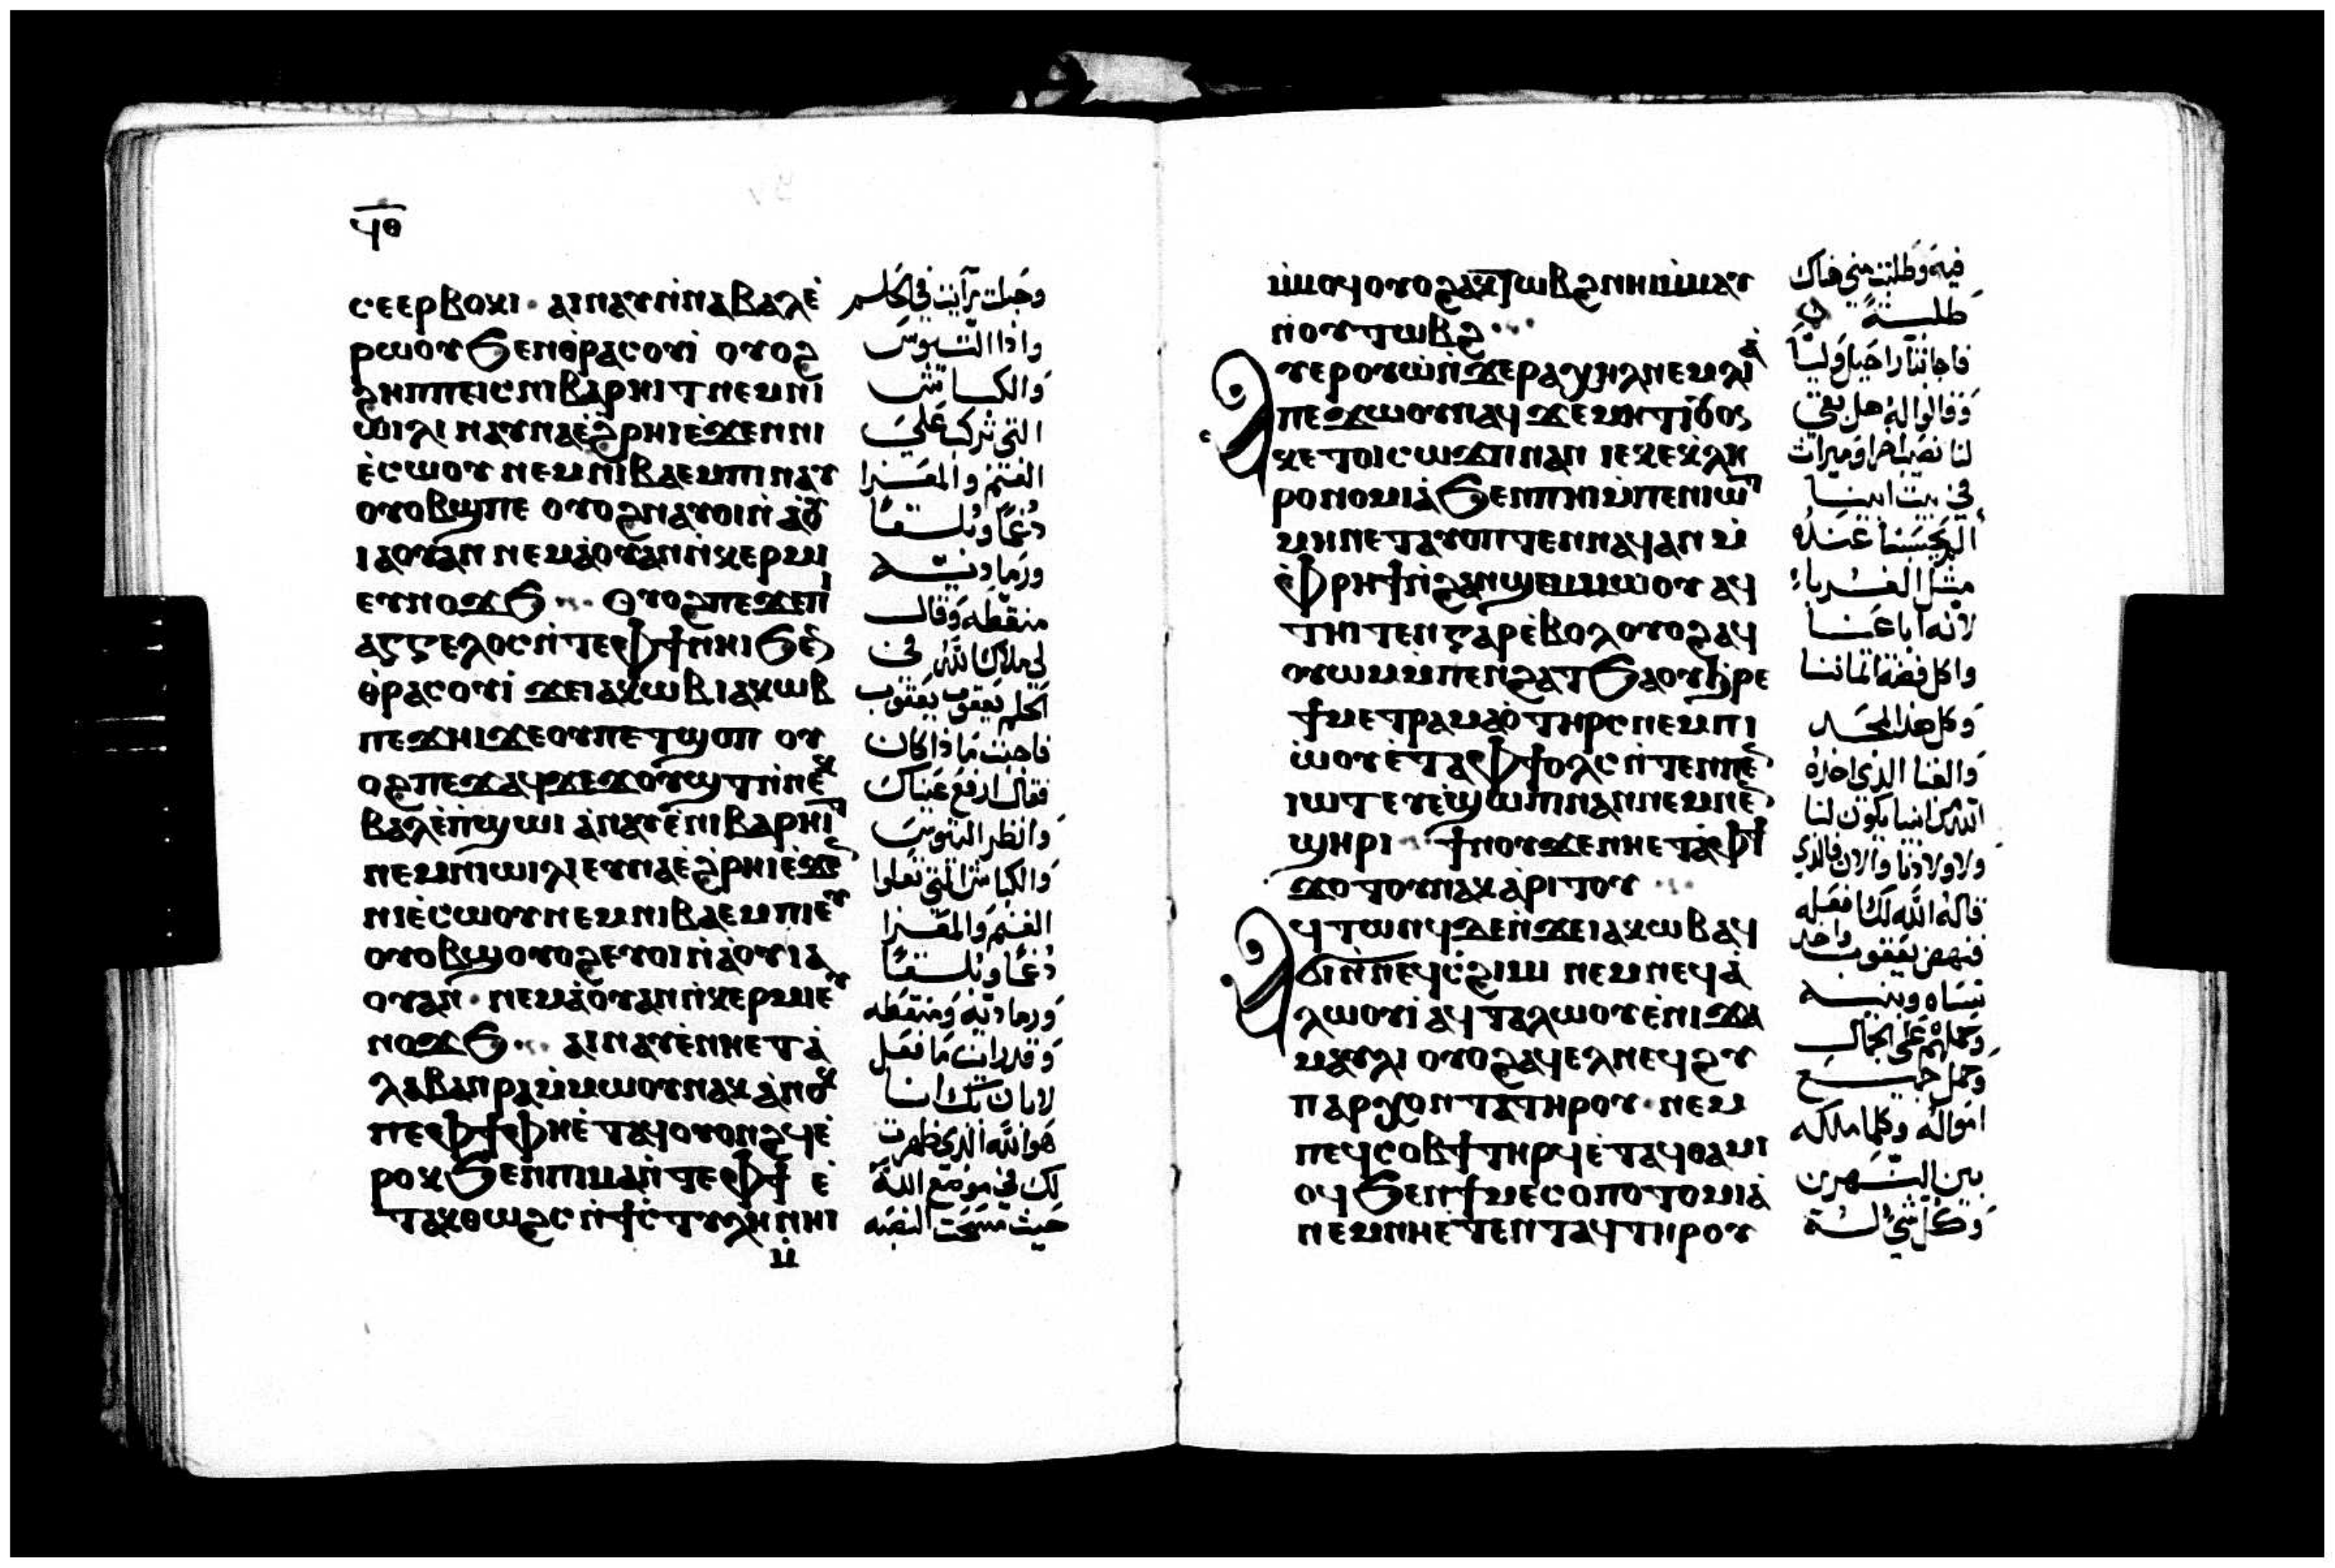 ϥⲑ
ⲥⲉⲉⲣⲃⲟⲕⲓ · ⲁⲓⲛⲁⲩⲛ̇ⲛⲁⲃⲁⲗⲉ̇
ⲣⲱⲟⲩϧⲉⲛⲑ̇ⲣⲁⲥⲟⲩⲓ̇ ⲟⲩⲟϩ
ϩⲏⲡⲡⲉⲓⲥⲛⲓⲃⲁⲣⲏⲓⲧⲛⲉⲙⲛⲓ
ⲱ̇ⲓⲗⲓ ⲛⲁⲩⲛⲁⲉ̇ϩⲣⲏⲓⲉ̇ϫⲉⲛⲛⲓ
ⲉ̇ⲥⲱⲟⲩ ⲛⲉⲙⲛⲓⲃⲁⲉⲙⲡⲓ ⲛⲁⲩ
ⲟⲩⲟⲃϣⲡⲉ ⲟⲩⲟϩⲛⲁⲩⲟⲓⲛ̇ ⲁ̇ⲟⲩ
ⲓⲁⲟⲩⲁⲛ ⲛⲉⲙⲁ̇ⲟⲩⲁⲛⲛ̇ⲕⲉⲣⲙⲓ
ⲉⲩⲛⲟϫϧ ·· ⲟⲩⲟϩⲡⲉϫⲉⲡⲓ
ⲁⲅⲅⲉⲗⲟⲥⲛ̇ⲧⲉⲫϯⲛⲏⲓ ϧⲉ
ⲑ̇ⲣⲁⲥⲟⲩⲓ̇ ϫⲉⲓⲁⲕⲱⲃⲓⲁⲕⲱⲃ
ⲡⲉϫⲏⲓϫⲉⲟⲩⲡⲉⲧϣⲟⲡ ⲟⲩ
ⲟϩⲡⲉϫⲁϥϫⲉϫⲟⲩϣⲧⲛ̇ⲛⲉⲕ
ⲃⲁⲗⲉ̇ⲡϣⲱⲓ ⲁ̇ⲛⲁⲩⲉ̇ⲛⲓⲃⲁⲣⲏⲓⲧ
ⲛⲉⲙⲛⲓⲱⲓⲗⲓⲉⲩⲛⲁⲉ̇ϩⲣⲏⲓⲉ̇ϫⲉ
ⲛⲓⲉ̇ⲥⲱⲟⲩⲛⲉⲙⲛⲓⲃⲁⲉⲙⲡⲓⲉⲩ
ⲟⲩⲟⲃϣⲟⲩⲟϩⲉⲩⲟⲓⲛ̇ⲁ̇ⲟⲩⲓⲁ
ⲟⲩⲁⲛ · ⲛⲉⲙⲁ̇ⲟⲩⲁⲛⲛ̇ⲕⲉⲣⲙⲓⲉⲩ
ⲛⲟϫϧ ·· ⲁⲓⲛⲁⲩⲉ̇ⲛⲏⲉⲧⲁ̇
ⲗⲁⲃⲁⲛⲣⲁⲙ̇ⲙⲱⲟⲩⲛⲁⲕ ⲁ̇ⲛⲟⲕ
ⲡⲉⲫϯⲫⲏⲉ̇ⲧⲁϥⲟⲩⲟⲛϩϥⲉ̇
ⲣⲟⲕϧⲉⲛⲡⲓⲙⲁⲛ̇ⲧⲉⲫϯ ⲉ̇
ⲧⲁⲕⲑⲱϩⲥⲛ̇ϯⲥ̇ⲧⲩⲗⲏⲛ̇ⲛⲏⲓ
ⲙ̇
وحبلت رأيت في الحلم
واذا التيوس
والكباش
التي تركب علي
الغنم والمعزا
دُغمًا وبُلقًا
ورمادية
منقطه وقال
لي ملاك الله في
الحلم يعقوب يعقوب
فاجبت ما ذا كان
فقال ارفع عيناك
وانظر التيوس
والكباش التي تعلوا
الغنم والمعزا
دُغمًا وبلقًا
ورمادية ومنقطه
وقد رايت ما فعل
لابان بك انا
هو الله الذي ظهرت
لك في موضع الله
حيث مسحت النصبه
ⲙ̇ⲙⲟϥⲟⲩⲟϩⲁⲕⲧⲱⲃϩⲛⲏⲓⲙ̇ⲙⲁⲩ
ⲛ̇ⲟⲩⲧⲱⲃϩ ···
ⲁⲩⲉⲣⲟⲩⲱ̇ⲛ̇ϫⲉⲣⲁⲭⲏⲗⲛⲉⲙⲗⲓⲁ̇
ⲡⲉϫⲱⲟⲩⲛⲁϥϫⲉⲙⲏⲧⲓ̇ⲟⲩⲟⲥ
ⲕⲉⲧⲟⲓⲥⲱϫⲡⲛⲁⲛ ⲓⲉⲕⲉⲕ̇ⲗⲏ
ⲣⲟⲛⲟⲙⲓⲁ̇ϧⲉⲛⲡⲏⲓⲙ̇ⲡⲉⲛⲓⲱⲧ
ⲙⲏⲡⲉⲧⲁⲩⲟⲡⲧⲉⲛⲛⲁϥⲁⲛ ⲙ̇
ⲫ̇ⲣⲏϯⲛ̇ϩⲁⲛϣⲉⲙⲙⲱⲟⲩ ⲁϥ
ⲧⲏⲓⲧⲉⲛⲅⲁⲣⲉ̇ⲃⲟⲗⲟⲩⲟϩⲁϥ
ⲟⲩⲱⲙⲙ̇ⲡⲉⲛϩⲁⲧϧⲁⲟⲩϧ̇ⲣⲉ
ϯⲙⲉⲧⲣⲁⲙⲁⲟ̇ⲧⲏⲣⲥⲛⲉⲙⲡⲓ
ⲱ̇ⲟⲩⲉ̇ⲧⲁⲫϯⲟⲗⲥⲛ̇ⲧⲉⲛⲡⲉ
ⲓⲱⲧⲉⲩⲉ̇ϣⲱⲡⲓⲛⲁⲛⲛⲉⲙⲛⲉ
ϣⲏⲣⲓ · ϯⲛⲟⲩϫⲉⲛⲏⲉⲧⲁⲫϯ
ϫⲟⲧⲟⲩⲛⲁⲕ ⲁ̇ⲣⲓⲧⲟⲩ ··
ⲁϥⲧⲱⲛϥϫⲉⲛ̇ϫⲉⲓⲁⲕⲱⲃⲁϥ
ϭⲓⲛ̇ⲛⲉϥⲥ̇ϩⲓⲙⲓ ⲛⲉⲙⲛⲉϥⲁ̇
ⲗⲱⲟⲩⲓ̇ ⲁϥⲧⲁⲗⲱⲟⲩⲉ̇ⲛⲓϫⲁ
ⲙⲁⲩⲗⲓ ⲟⲩⲟϩⲁϥⲉⲗⲛⲉϥϩⲩ
ⲡⲁⲣⲭⲟⲛⲧⲁⲧⲏⲣⲟⲩ · ⲛⲉⲙ
ⲡⲉϥⲥⲟⲃϯⲧⲏⲣϥⲉ̇ⲧⲁϥⲑⲁⲙⲓ
ⲟϥϧⲉⲛϯⲙⲉⲥⲟⲡⲟⲧⲟⲙⲓⲁ̇
ⲛⲉⲙⲛⲏⲉ̇ⲧⲉⲛⲧⲁϥⲧⲏⲣⲟⲩ
فيه وطلبت مني هناك
طلبة
فاجابتا راحيل وليّا
وقالوا له هل بقي
لنا نصيبًا اخر او ميراث
في بيت ابينا
الم يحسبنا عنده
مثل الغرباء
لانه اباعنا
واكل فضة اثماننا
وكل هذا المجد
والغنا الذي اخذه
الله من ابينا يكون لنا
ولاولادنا والان فالذي
قاله الله لك افعله
فنهض يعقوب واخد
نساه وبنيه
وحملهم على الجمال
وحمل جميع
امواله وكلما ملكه
بين النهرين
وكل شي له